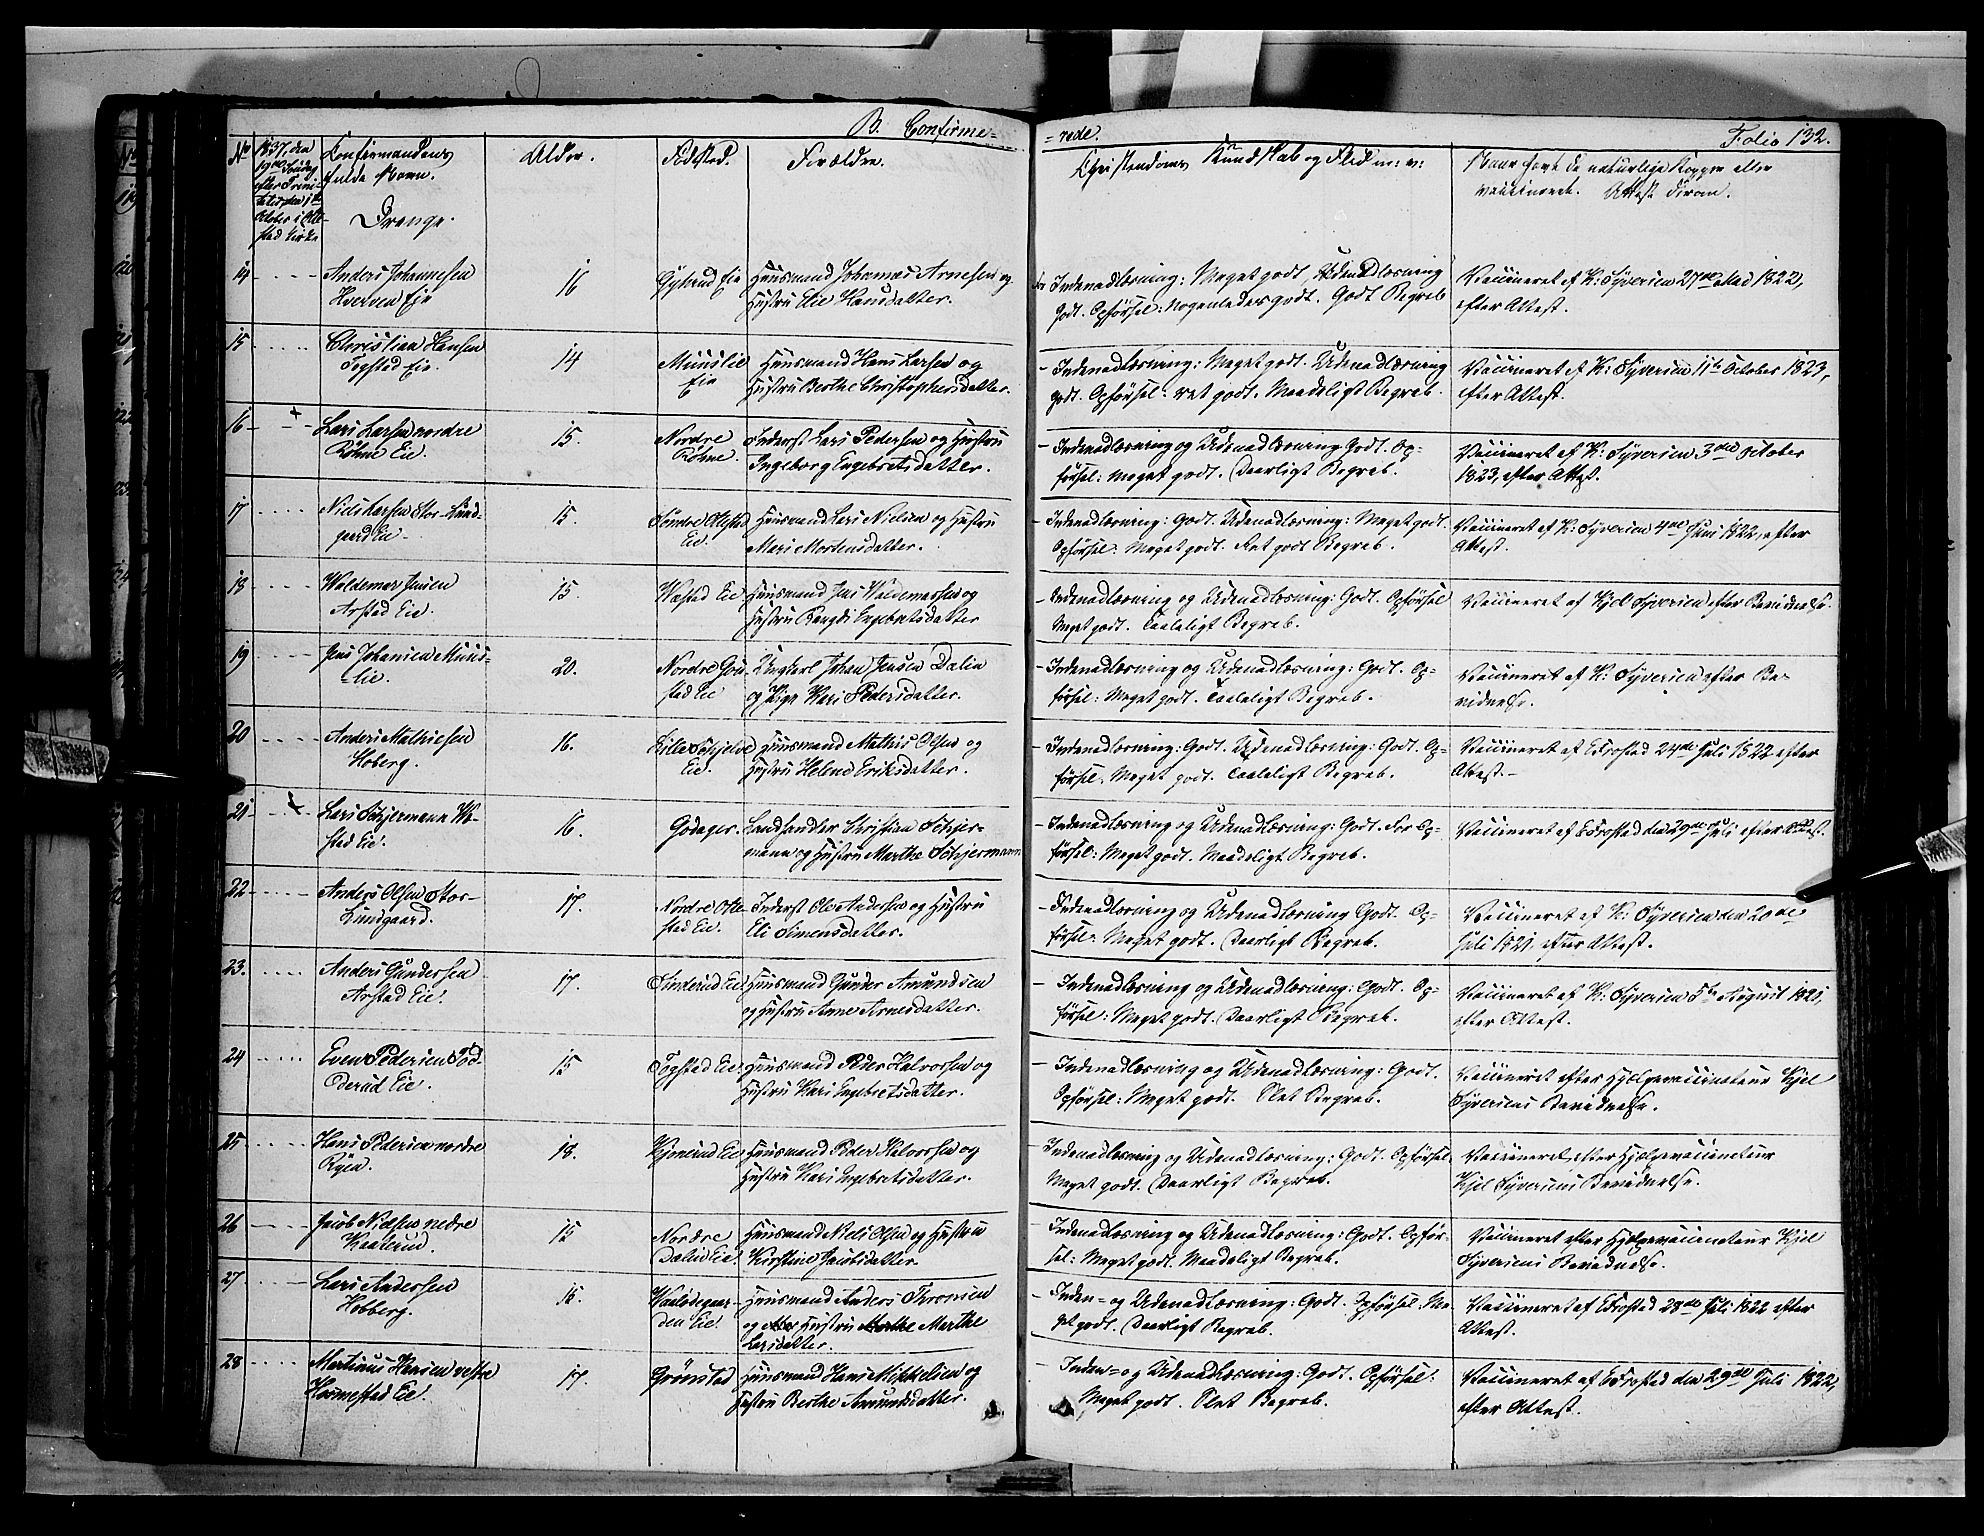 B. Confirme=
=rede.
Folio 132.
No
1837. den
19de Søndag
efter Trini-
tatis den 1te
October i Otte-
stad Kirke
Confirmandens
fulde Navn.
Drenge.
Alder.
Fødested.
Forældre.
Christendoms Kundskab og Flid m: v:
Naar havt de naturlige Kopper eller
vaccinerede. Attest derom.
14
Anders Johannesen
Hverven Eje
16
Eie
Huusmand Johannes Arnesen og
Hustru Elie Hansdatter.
Indenadlæsning: Meget godt. Udenadlæsning
Godt. Opførsel: Nogenledes godt. Godt Begreb
Vaccineret af K: Syversen 27de Mad 1822,
efter Attest.
15
Christian Hansen
Togstad Eie.
14
Muuslie
Eie
Huusmand Hans Larsen og
Hustru Berthe Christophersdatter.
- Indenadlæsning: Meget godt. Udenadlæsning
godt. Opførsel: ret godt. Maadeligt Begreb.
Vaccineret af K: Syversen 11te October 1823,
efter Attest.
16
Lars Larsen nordre
Røhne Eie.
15.
Nordre
Røhne.
Inderst Lars Pedersen og Hustru
Ingeborg Engebretsdatter.
- Indenadlæsning og Udenadlæsning Godt. Op-
førsel: Meget godt. Daarligt Begreb.
Vaccineret af K: Syversen 3die October
1823, efter Attest.
17
Niels Larsen Stor-Lund-
gaard Eie-
15.
Søndre Ottestad
Eie.
Huusmand Lars Nielsen og Hustru
Mari Mortensdatter.
- Indenadlæsning: Godt. Udenadlæsning: Meget godt.
Opførsel: Meget godt. Ret godt Begreb.
Vaccineret af K: Syversen 4de Juni 1822, efter
Attest.
18
Waldemar Jensen
Arstad Eie.
15.
Wæstad Eie
Huusmand Jens Waldemarsen og
Hustru Bengdi Engebretsdatter
- Indenadlæsning og Udenadlæsning: Godt. Opførsel
Meget godt. Taaleligt Begreb.
Vaccineret af Kjel Syversen efter Bevidnelse.
19
Jens Johansen Muus-
lie.
20.
Nordre Gou
stad Eie
Ungkarl Johan Jensen Dalin
og Pige Kari Pedersdatter.
- Indenadlæsning og Udenadlæsning: Godt. Op-
førsel: Meget godt. Taaleligt Begreb.
Vaccineret af K: Syversen efter Be-
vidnelse.
20
Anders Mathiesen
Hoberg.
16.
Lille Schjelve
Eie.
Huusmand Mathis Olsen og
Hustru Helene Eriksdatter.
- Indenadlæsning: Godt. Udenadlæsning: Godt. Op-
førsel: Meget godt. Taaleligt Begreb.
Vaccineret af E Frostad 24de Juli 1822 efter
Attest.-
21
Lars Schjermann Wæ-
stad Eie.
16.
Godager.
Landhandler Christian Schjer-
mann og Hustru Marthe Schjermann
- Indenadlæsning og Udenadlæsning: Godt. For Op-
førsel: Meget godt. Maadeligt Begreb.
Vaccineret af E Frostad den 29de Juli efter Attest.
22
Anders Olsen Stor-
Lundgaard.
17.
Nordre Otte-
stad Eie.
Inderst Ole Andersen og Hustru
Eli Simensdatter.
- Indenadlæsning og Udenadlæsning Godt. Op-
førsel: Meget godt. Daarligt Begreb.
Vaccineret af K: Syversen den 20de
Juli 1821. efter Attest.
23.
Anders Gundersen
Arstad Eie.
17.
Sinderud Eie
Huusmand Gunder Amundsen
og Hustru Anne Arnesdatter.
- Indenadlæsning og Udenadlæsning: Godt. Op-
førsel: Meget godt. Daarligt Begreb.
Vaccineret af K: Syversen 5te August 1821,
efter Attest.
24
Even Pedersen
Eie.
15
Togstad Eie
Huusmand Peder Halvorsen og
Hustru Kari Engebretsdatter.
- Indenadlæsning og Udenadlæsning: Godt.
Opførsel: Meget godt. Slet Begreb.
Vaccineret efter Hjælpevaccinateur Kjel
Syversens Bevidnelse.
25
Hans Pedersen nordre
Ryen.
18.
Kjonerud Eie
Huusmand Peder Halvorsen og
Hustru Kari Ingebretsdatter.
Indenadlæsning og Udenadlæsning: Godt. Opførsel
Meget godt. Daarligt Begreb.
Vaccineret, efter Hjælpevaccinateur
Kjel Syversens Bevidnelse.
26
Jacob Nielsen nedre
Kaaterud.
15
Nordre
Dalin Eie.
Huusmand Niels Olsen og Hustru
Kirstine Jacobsdatter.
- Indenadlæsning og Udenadlæsning: Godt. Opfør-
sel: Meget godt. Maadeligt Begreb.
Vaccineret efter Hjelpevaccinateur Kjel
Syversens Bevidnelse.
27
Lars Andersen
Hoberg.
Eie.
Huusmand Anders Thronsen
og Hustru Marthe
Larsdatter.
- Inden= og Udenadlæsning: Godt. Opførsel: Me-
get godt. Daarligt Begreb.
Vaccineret af E Frostad 28de Juli 1822 efter
Attest.
28
Martinus Hansen vestre
Hommestad Eie.
17.
Grönstad
Huusmand Hans Mikkelsen og
Hustru Berthe Amundsdatter.
- Inden= og Udenadlæsning: Godt. Opførsel:
Meget godt. Slet Begreb.
Vaccineret af E Frostad den 29de Juli 1822,
efter Attest.